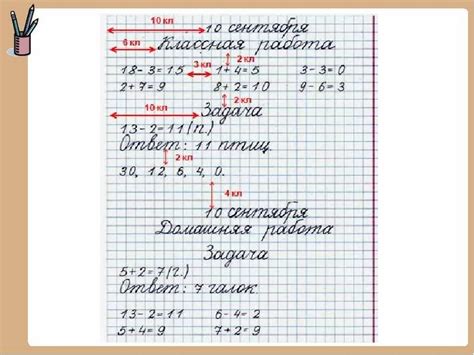 10 кл
10 сентября
6 кл
Классная работа
2 кл
18-3=15 3 кл 1+4=5 3-3=0
2+7=9 8+2=10 9-6=3
2 кл
10 кл
Задача
13-2=11(п.)
Ответ: 11 птиц.
2 кл
30, 12, 6, 4, 0.
4 кл
10 сентября
Домашняя работа
Задача
5+2=7(г.)
Ответ: 7 галок.
13-2=11 6-4=2
5+4=9 7+2=9